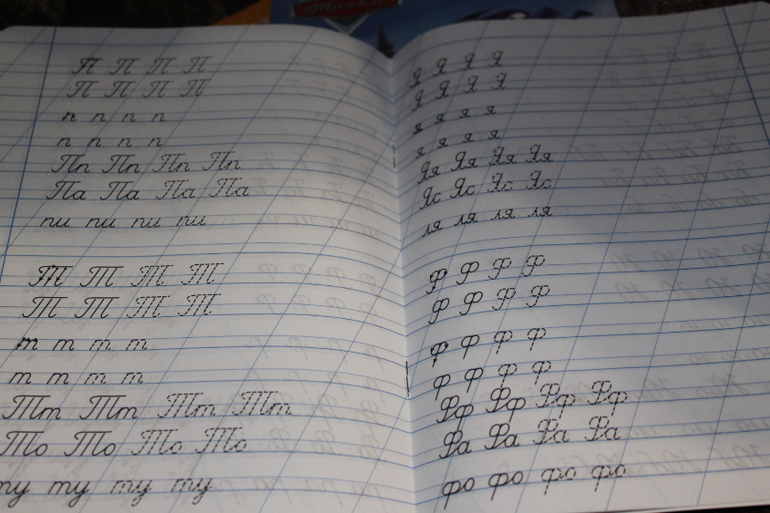 П П П П
П П П П
п п п п
п п п п
Пп Пп Пп Пп
Па Па Па Па
пи пи пи пи
Т Т Т Т
Т Т Т Т
т т т т
т т т т
Тт Тт Тт Тт
То То То То
ту ту ту ту
Я Я Я Я
Я Я Я Я
я я я я
я я я я
Яя Яя Яя Яя
Яс Яс Яс Яс
ля ля ля ля
Ф Ф Ф Ф
Ф Ф Ф Ф
ф ф ф ф
ф ф ф ф
Фф Фф Фф Фф
Фа Фа Фа Фа
фо фо фо фо